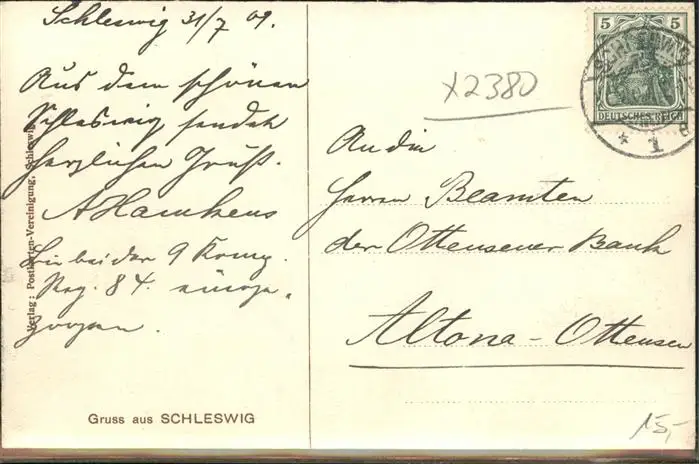 Schleswig 31/7 09.
Aus dem schönen
Schleswig sendet
herzlichen Gruß.
A Hamkens
Bin bei der 9 Komp.
Reg. 84. einge-
zogen.
Verlag: Postkarten-Vereinigung, Schleswig
Gruss aus SCHLESWIG
X2380
5 5
DEUTSCHES REICH
SCHLESWIG
* 1
An die
Herren Beamten
der Ottensener Bank
Altona-Ottensen
15,-